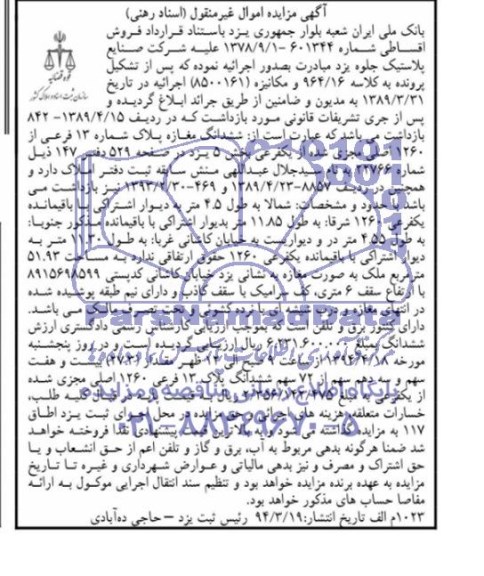 آگهی مزایده اموال غیرمنقول (اسناد رهنی)
بانک ملی ایران شعبه بلوار جمهوری یزد باستناد قرارداد فروش
اقساطی شماره ۶۰۱۳۴۴ -۱۳۷۸/۹/۱ علیه شرکت صنایع
پلاستیک جلوه یزد مبادرت بصدور اجرائیه نموده که پس از تشکیل
پرونده به کلاسه ۹۶۴/۱۶ و مکانیزه (۸۵۰۰۱۶۱) اجرائیه در تاریخ
۱۳۸۹/۳/۳۱ به مدیون و ضامنین از طریق جرائد ابلاغ گردیده و
پس از جری تشریفات قانونی مورد بازداشت که در ردیف ۱۳۸۹/۴/۱۵- ۸۴۲
بازداشت می باشد که عبارت است از: ششدانگ مغازه پلاک شماره ۱۳ فرعی از
۱۲۶۰ اصلی مجزی شده از یکفرعی بخش ۵ یزد در صفحه ۵۲۹ دفتر ۱۴۷ ذیل
شماره ۲۲۷۶۶ به نام سیدجلال عبداللهی منش سابقه ثبت دفتر املاک دارد و
همچنین در ردیف ۸۸۵۷-۱۳۸۹/۴/۲۳ و ۴۶۹-۱۳۹۳/۷/۳۰ نیز بازداشت می
باشد با حدود و مشخصات: شمالا به طول ۴.۵ متر به دیوار اشتراکی با باقیمانده
یکفرعی ۱۲۶۰ شرقا: به طول ۱۱.۸۵ متر بدیوار اشتراکی با باقیمانده مذکور جنوبا:
به طول ۴.۵۵ متر در و دیواریست به خیابان کاشانی غربا: به طول ۱۱.۳۰ متر به
دیوار اشتراکی با باقیمانده یکفرعی ۱۲۶۰ حقوق ارتفاقی ندارد به مساحت ۵۱.۹۳
مترمربع ملک به صورت مغازه به نشانی یزد خیابان کاشانی کدپستی ۸۹۱۵۶۹۸۵۹۹
با ارتفاع سقف ۶ متری، کف سرامیک با سقف کاذب و دارای نیم طبقه پوشیده شده
در انتهای مغازه و درب شیشه ای با نرده کشویی و تحت تصرف مالک می باشد.
دارای کنتور برق و تلفن است که بموجب ارزیابی کارشناس رسمی دادگستری ارزش
ششدانگ بمبلغ ریال ارزیابی گردیده است و در روز پنجشنبه
مورخه ۱۳۹۴/۴/۱۸ از ساعت ۹ صبح الی ۱۲ ظهر مقدار (۲۷.۲) بیست و هفت
سهم و سه دهم سهم از ۷۲ سهم ششدانگ پلاک ۱۳ فرعی ۱۲۶۰ اصلی مجزی شده
از یکفرعی از مبلغ در قبال کلیه طلب،
خسارات متعلقه هزینه های اجرائی و حق مزایده در محل اجرای ثبت یزد اطاق
۱۱۷ به مزایده گذاشته می شود و به بالاترین قیمت پیشنهادی نقدا فروخته خواهد
شد ضمنا هرگونه بدهی مربوط به آب، برق و گاز و تلفن اعم از حق انشعاب و یا
حق اشتراک و مصرف و نیز بدهی مالیاتی و عوارض شهرداری و غیره تا تاریخ
مزایده به عهده برنده مزایده خواهد بود و تنظیم سند انتقال اجرایی موکول به ارائه
مفاصا حساب های مذکور خواهد بود.
۱۰۲۳م الف تاریخ انتشار: ۹۴/۳/۱۹ رئیس ثبت یزد – حاجی ده‌آبادی
ParsNamadData
۰۲۱-۸۸۳۴۹۶۷۰-۵